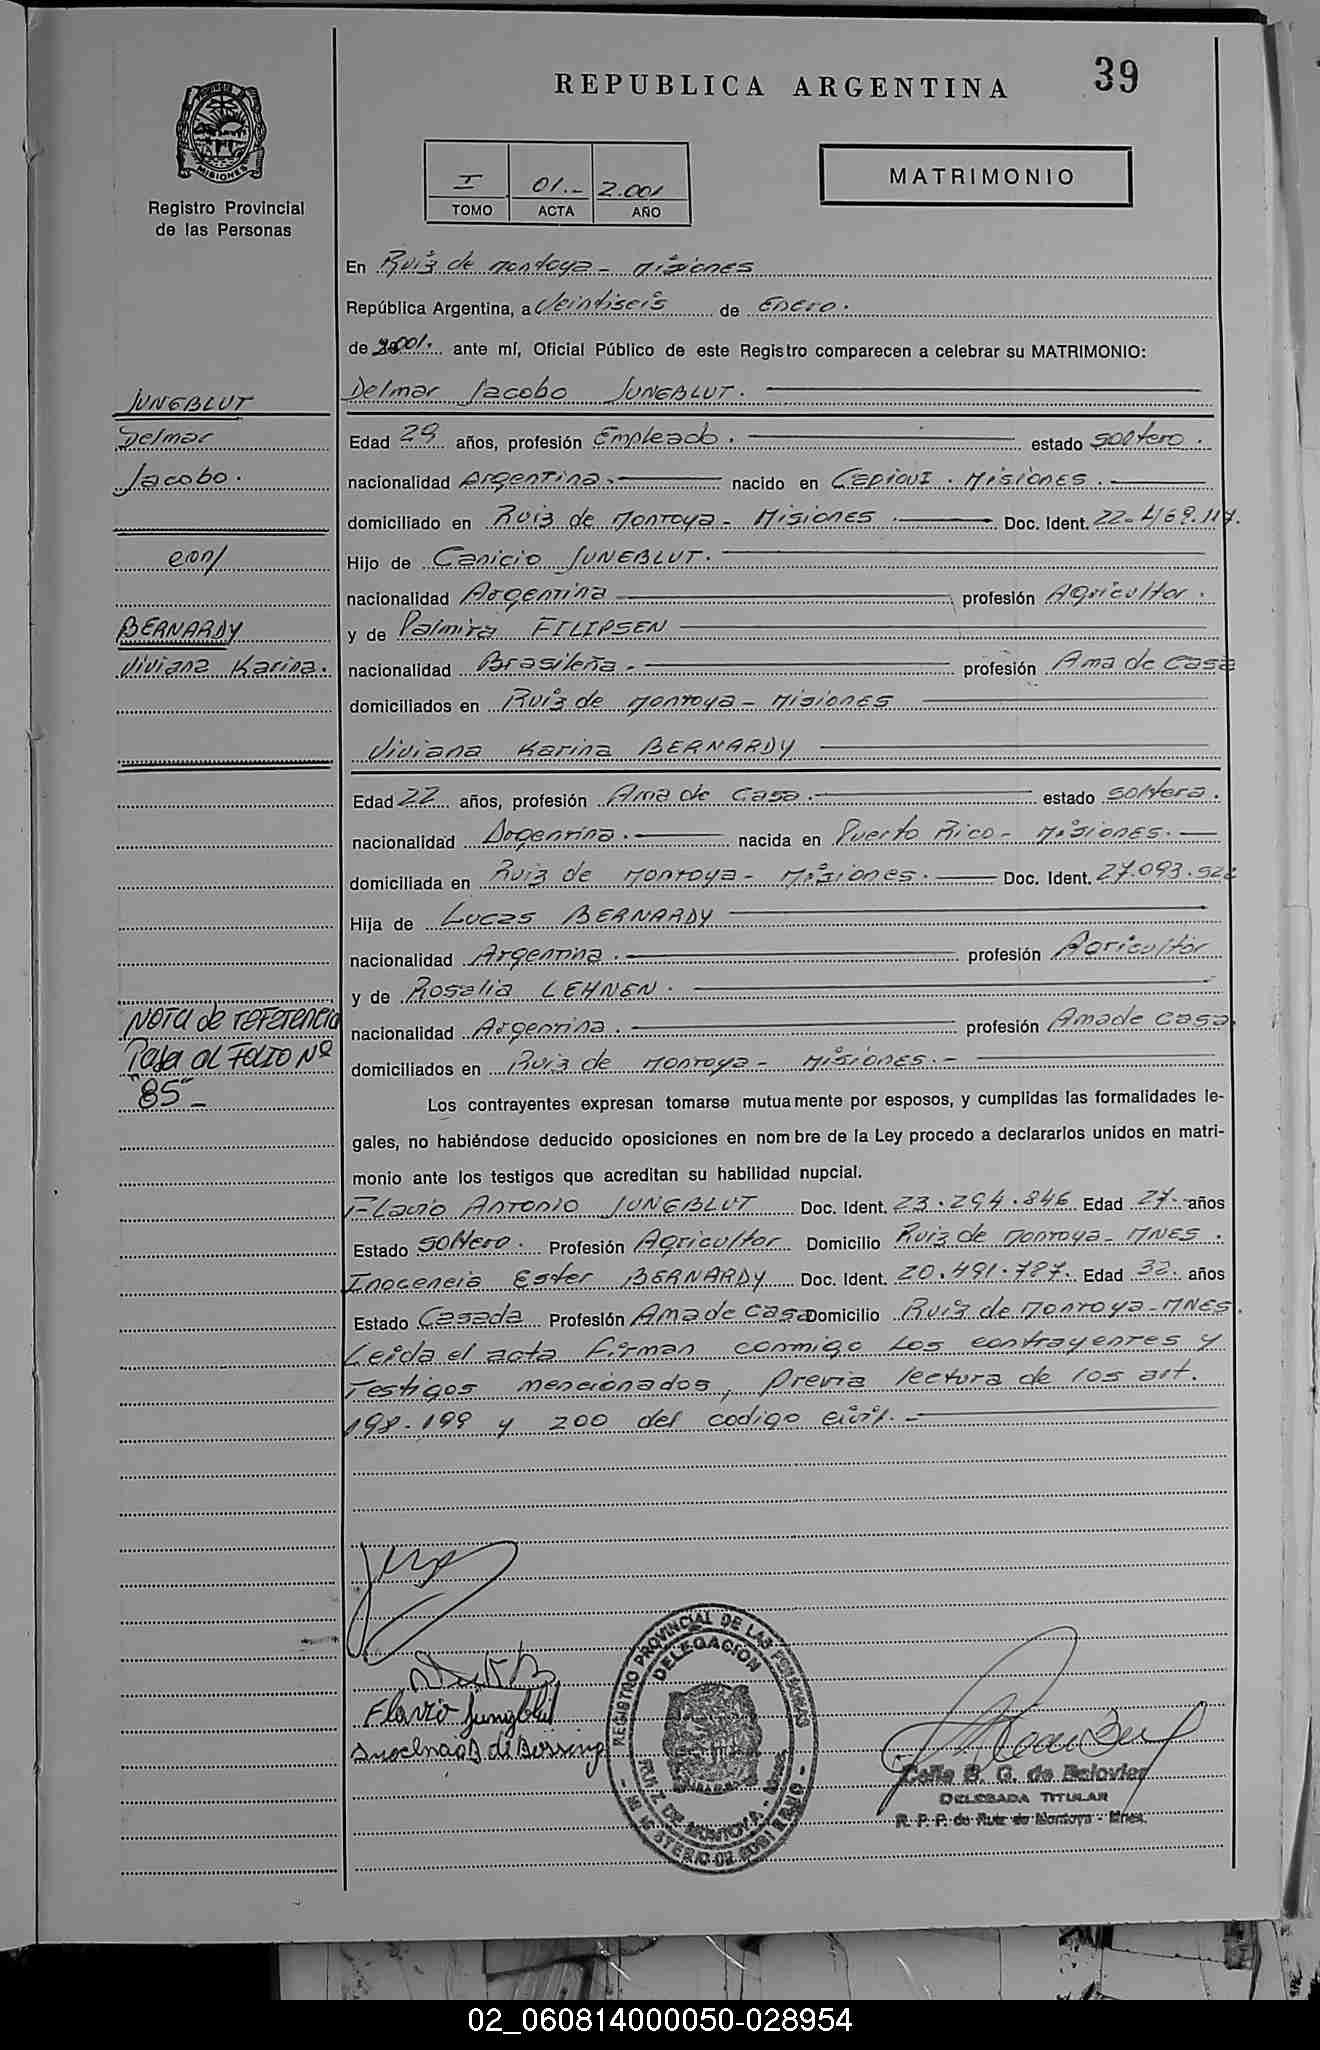 REPUBLICA ARGENTINA
39
MISIONES
Registro Provincial
de las Personas
I 01.- 2.001
TOMO ACTA AÑO
MATRIMONIO
En Ruiz de Montoya - Misiones
República Argentina, a Veintiseis de Enero.
de 2001. ante mí, Oficial Público de este Registro comparecen a celebrar su MATRIMONIO:
Delmar Jacobo JUNGBLUT.
JUNGBLUT
Delmar
Jacobo.
con/
BERNARDY
Viviana Karina.
Edad 29 años, profesión Empleado. estado soltero.
nacionalidad Argentina. nacido en Capiovi. Misiones.
domiciliado en Ruiz de Montoya - Misiones Doc. Ident. 22.469.117.
Hijo de Canicio JUNGBLUT.
nacionalidad Argentina profesión Agricultor.
y de Palmira FILIPSEN
nacionalidad Brasileña. profesión Ama de Casa
domiciliados en Ruiz de Montoya - Misiones
Viviana Karina BERNARDY
Edad 22 años, profesión Ama de Casa. estado soltera.
nacionalidad Argentina. nacida en Puerto Rico - Misiones.
domiciliada en Ruiz de Montoya - Misiones. Doc. Ident. 27.093.522
Hija de Lucas BERNARDY
nacionalidad Argentina. profesión Agricultor
y de Rosalia LEHNEN.
nacionalidad Argentina. profesión Ama de casa.
domiciliados en Ruiz de Montoya - Misiones.-
Nota de referencia
Pasa al Folio Nº
"85"-
Los contrayentes expresan tomarse mutuamente por esposos, y cumplidas las formalidades le-
gales, no habiéndose deducido oposiciones en nombre de la Ley procedo a declararlos unidos en matri-
monio ante los testigos que acreditan su habilidad nupcial.
Flavio Antonio JUNGBLUT Doc. Ident. 23.294.846 Edad 27. años
Estado soltero. Profesión Agricultor Domicilio Ruiz de Montoya - MNES.
Inocencia Ester BERNARDY Doc. Ident. 20.491.787. Edad 32. años
Estado Casada Profesión Ama de casa Domicilio Ruiz de Montoya - MNES.
Leida el acta firman conmigo los contrayentes y
Testigos mencionados, previa lectura de los art.
198-199 y 200 del codigo civil.-
Flavio Jungblut
REGISTRO PROVINCIAL DE LAS PERSONAS
DELEGACION
RUIZ DE MONTOYA - Mnes.
MINISTERIO DE GOBIERNO
Celia B. G. de Belovier
DELEGADA TITULAR
R. P. P. de Ruiz de Montoya - Mnes.
02_060814000050-028954